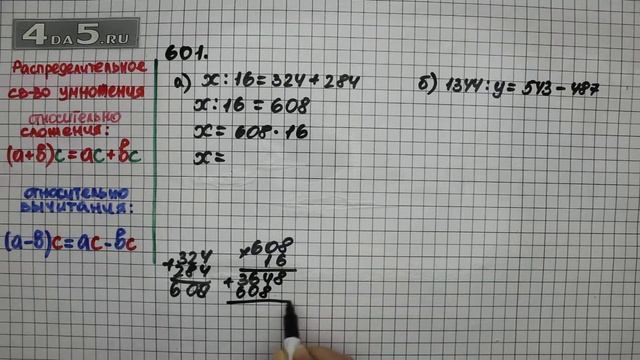 4DA5.RU
Распределительное
св-во умножения
относительно
сложения:
(a+b)c=ac+bc
относительно
вычитания:
(a-b)c=ac-bc
601.
а) x:16=324+284
x:16=608
x=608·16
x=
б) 1344:y=543-487
+324
284
608
×608
16
+3648
608